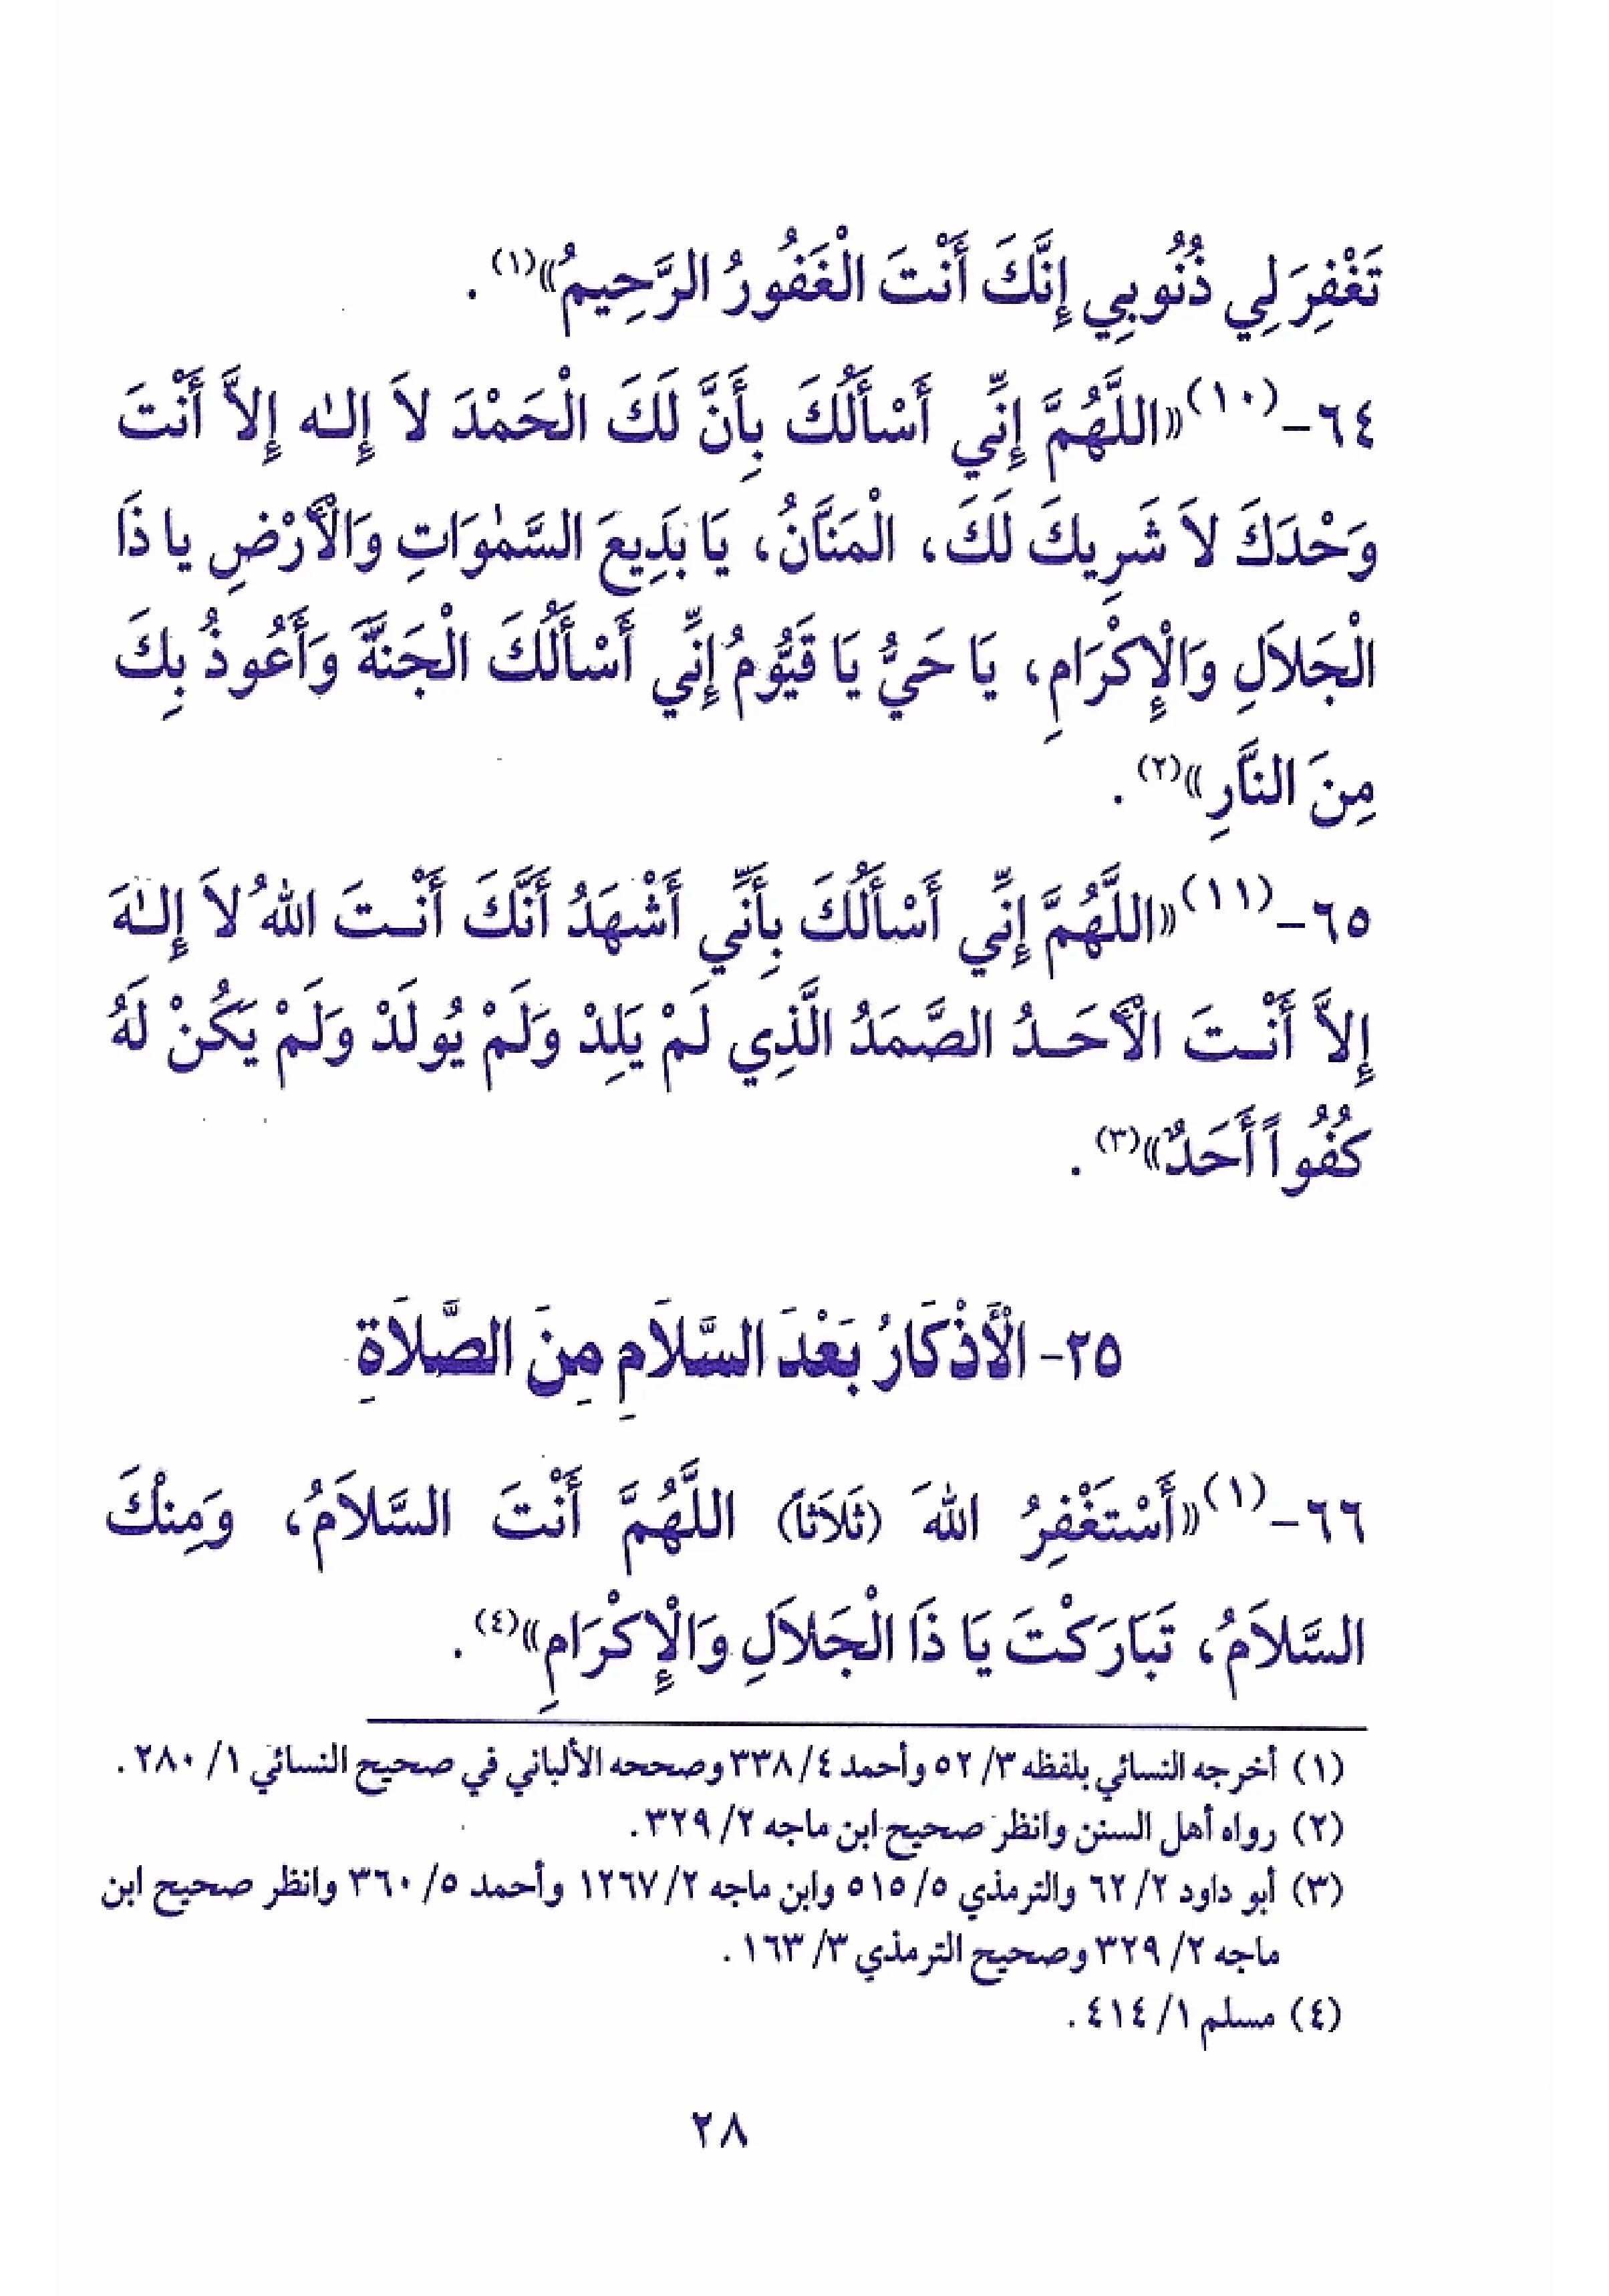 تَغْفِرَ لِي ذُنُوبِي إِنَّكَ أَنْتَ الْغَفُورُ الرَّحِيمُ»(١) .
٦٤-(١٠)«اللَّهُمَّ إِنِّي أَسْأَلُكَ بِأَنَّ لَكَ الْحَمْدَ لاَ إِلـٰه إِلاَّ أَنْتَ
وَحْدَكَ لاَ شَرِيكَ لَكَ، الْمَنَّانُ، يَا بَدِيعَ السَّمٰوَاتِ وَالْأَرْضِ يا ذَا
الْجَلاَلِ وَالْإِكْرَامِ، يَا حَيُّ يَا قَيُّومُ إِنِّي أَسْأَلُكَ الْجَنَّةَ وَأَعُوذُ بِكَ
مِنَ النَّارِ»(٢) .
٦٥-(١١)«اللَّهُمَّ إِنِّي أَسْأَلُكَ بِأَنِّي أَشْهَدُ أَنَّكَ أَنْـتَ اللهُ لاَ إِلـٰهَ
إِلاَّ أَنْـتَ الْأَحَـدُ الصَّمَدُ الَّذِي لَمْ يَلِدْ وَلَمْ يُولَدْ وَلَمْ يَكُنْ لَهُ
كُفُواً أَحَدٌ»(٣) .
٢٥- الْأَذْكَارُ بَعْدَ السَّلاَمِ مِنَ الصَّلاَةِ
٦٦-(١)«أَسْتَغْفِرُ اللهَ (ثَلاَثاً) اللَّهُمَّ أَنْتَ السَّلاَمُ، وَمِنْكَ
السَّلاَمُ، تَبَارَكْتَ يَا ذَا الْجَلاَلِ وَالْإِكْرَامِ»(٤) .
(١) أخرجه النسائي بلفظه ٣/ ٥٢ وأحمد ٤/ ٣٣٨ وصححه الألباني في صحيح النسائي ١/ ٢٨٠ .
(٢) رواه أهل السنن وانظر صحيح ابن ماجه ٢/ ٣٢٩ .
(٣) أبو داود ٢/ ٦٢ والترمذي ٥/ ٥١٥ وابن ماجه ٢/ ١٢٦٧ وأحمد ٥/ ٣٦٠ وانظر صحيح ابن
ماجه ٢/ ٣٢٩ وصحيح الترمذي ٣/ ١٦٣ .
(٤) مسلم ١/ ٤١٤ .
٢٨